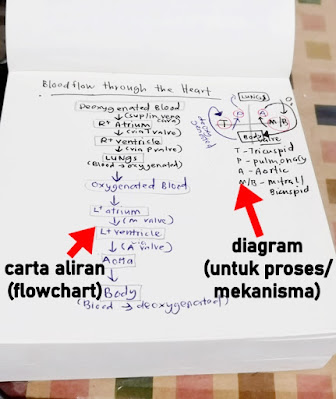 Bloodflow through the Heart
Deoxygenated Blood
Rt Atrium
(via T valve)
Rt ventricle
(via P valve)
LUNGS
(Blood → oxygenated)
Oxygenated Blood
Lt atrium
(M valve)
Lt ventricle
(A valve)
Aorta
Body
(Blood → deoxygenated)
LUNGS
T
P
A
M/B
Body
valve
T - Tricuspid
P - pulmonary
A - Aortic
M/B - mitral/
Bicuspid
carta aliran
(flowchart)
diagram
(untuk proses/
mekanisma)